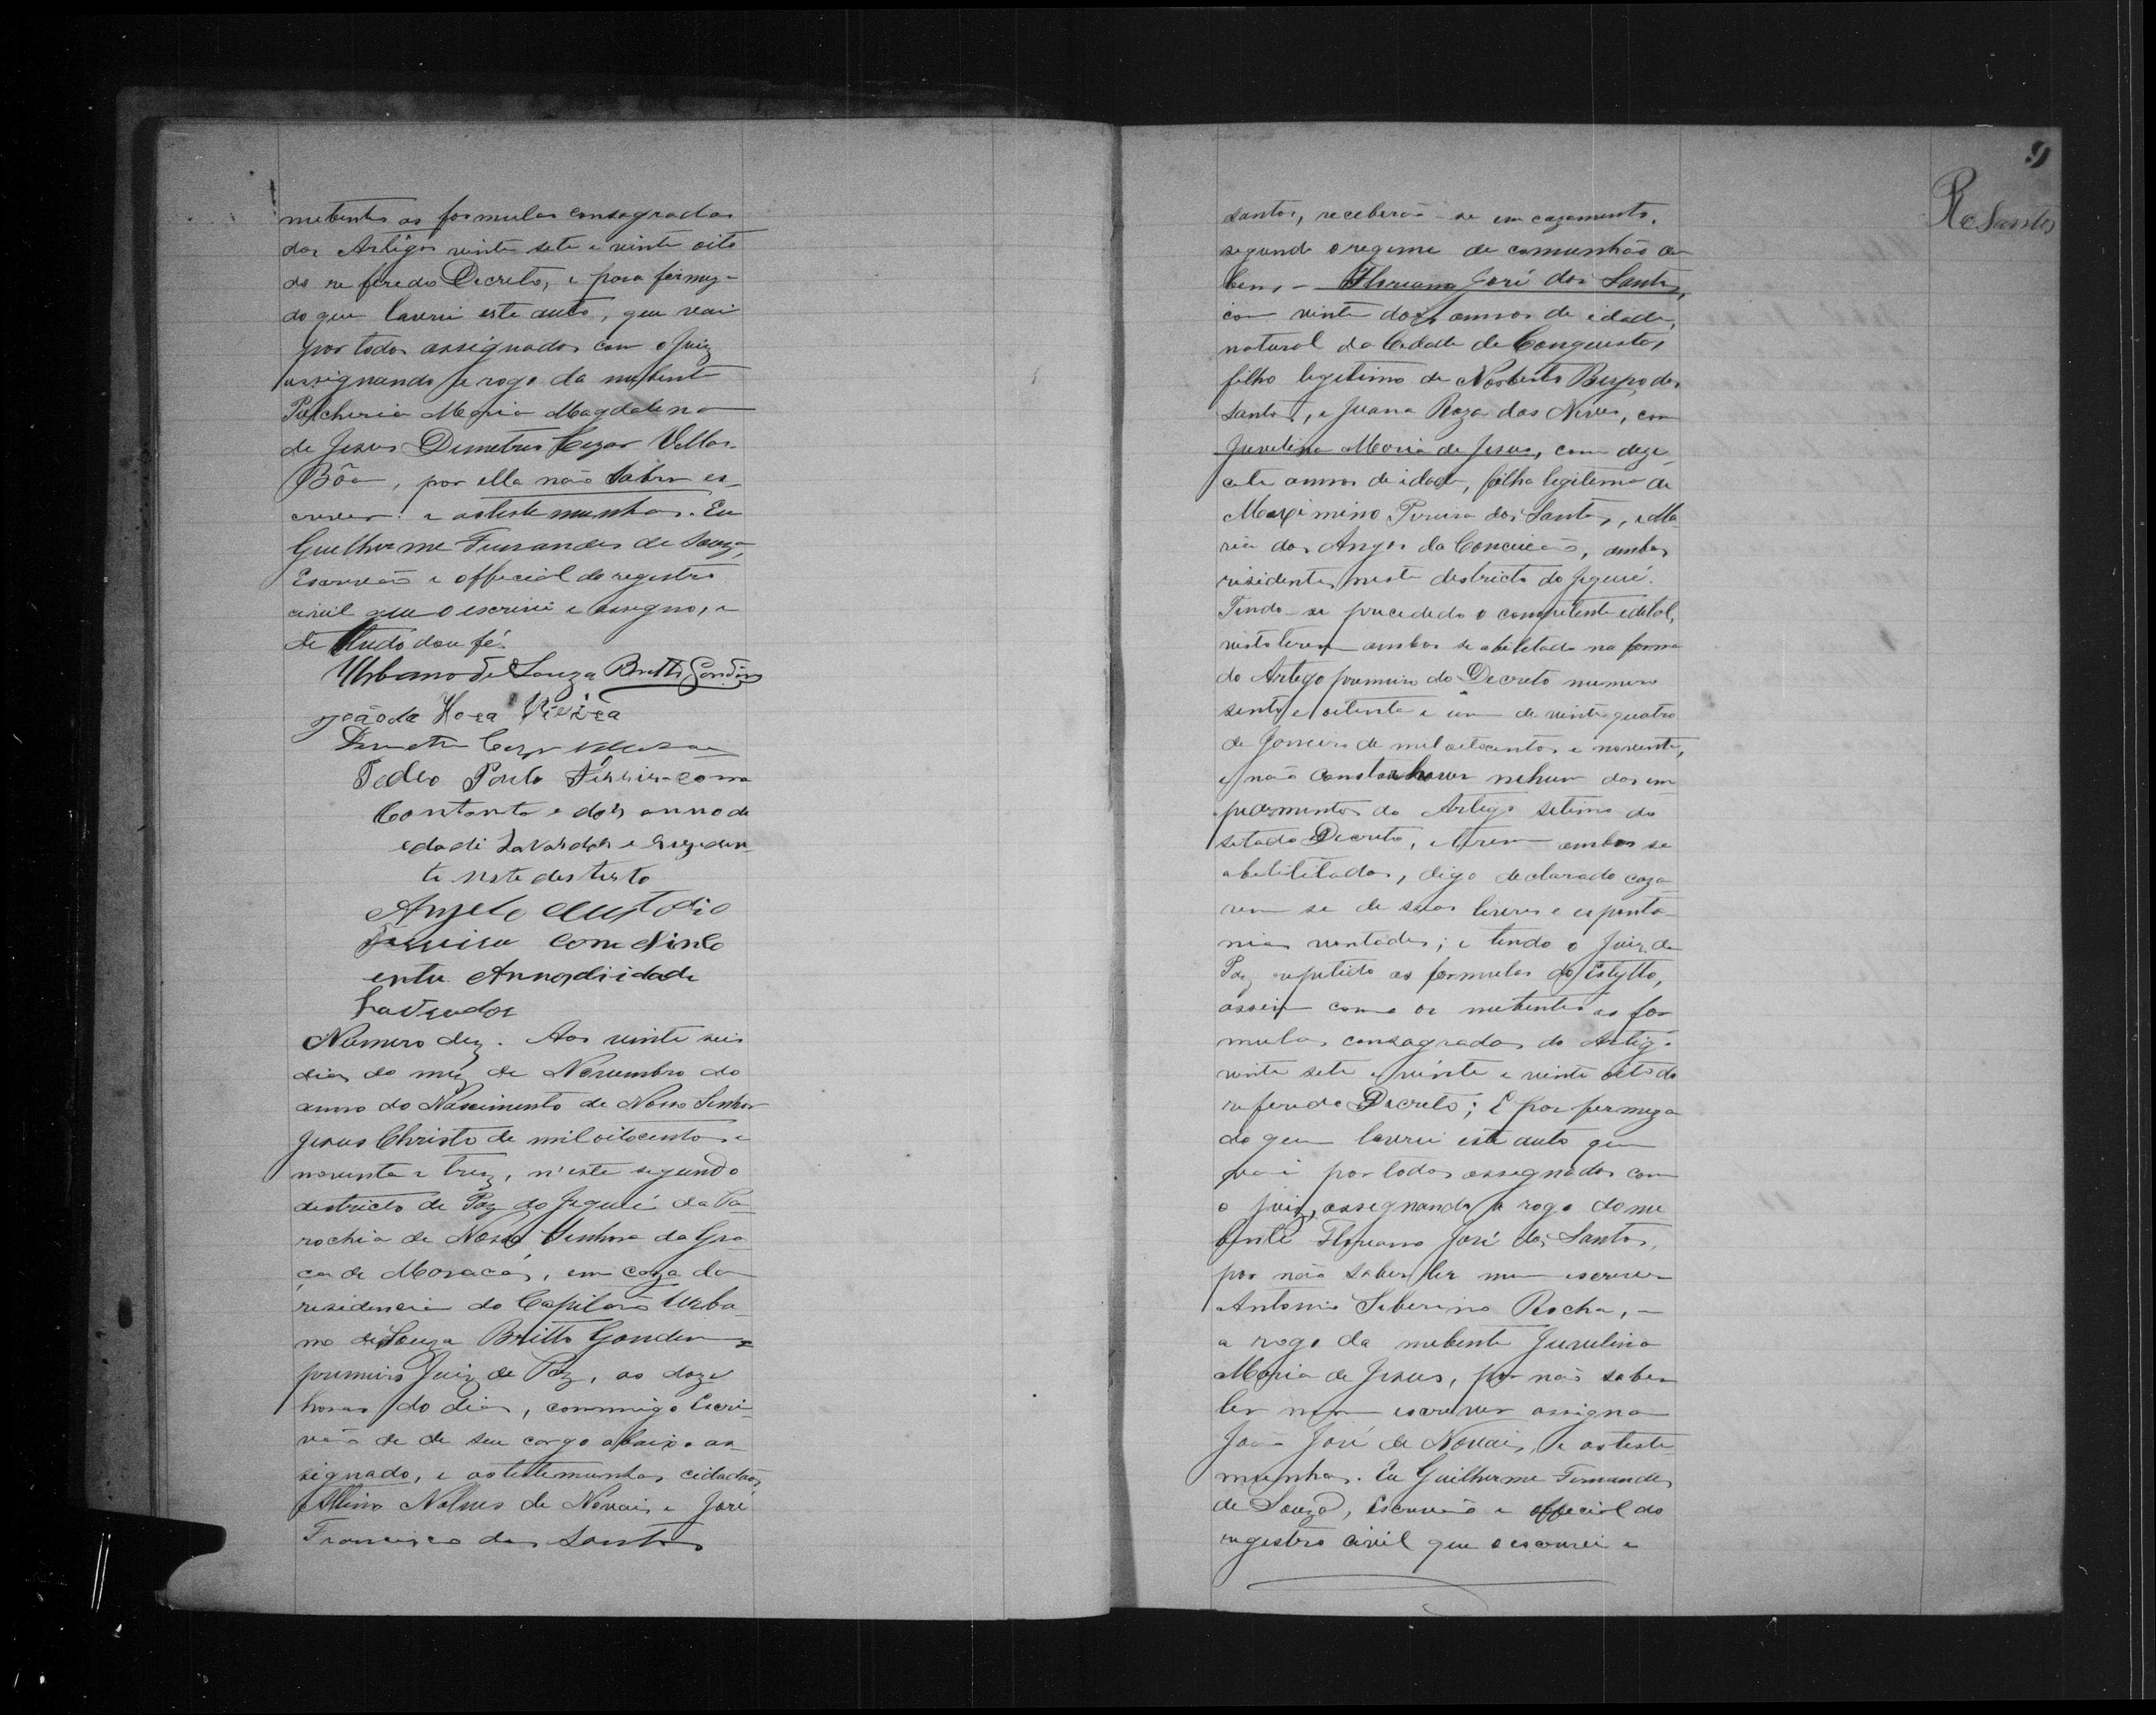 nubentes as formulas consagradas
dos Artigos vinte sete e vinte oito
do referedo Decreto, e para firmeza
do que lavrei este auto, que vai
por todos assignados com o Juiz
assignando a rogo da nubente
Pulcheria Maria Magdalena
de Jesus Demetrio Cezar Villas
Bôa, por ella não saber es-
crever e as testemunhas. Eu
Guilherme Fernandes de Souza,
Escrivão e official do registro
civil que o escrivi e assigno, e
de tudo dou fé.
Urbano de Souza Britto Gondim
João da Hora Vieira
Demetrio Cezar
Pedro Porto com
e dois anno de
edadi Lavrador e rezeden
te neste destrito
Angelo Custodio
com
entu Annos di idade
Lavrador
Numero dez. Aos vinte seis
dias do mez de Novembro do
anno do Nascimento de Nosso Senhor
Jesus Christo de mil oitocentos e
noventa e trez, n'este segundo
destricto de Paz do Jequié da Pa-
rochia de Nossa Senhora da Gra
ça de Maracás, em caza da
residencia do Capitão Urba-
no de Souza Britto Gondim
primeiro Juiz de Paz, as doze
horas do dia, commigo Escri-
vão de de seu cargo abaixo as
signado, e as testemunhas cidadãos
Altino Nolues de Novais e José
Francisco dos Santos
9
R. Santos
santos, receberão-se em cazamento,
segundo o regime de comunhão de
bens, - Floriano José dos Santos,
com vinte dois annos de idade,
natural da Cidade de Conquista,
filho legitimo de Norberto Bispo dos
Santos, e Juana Roza das Neves, com
Juvelina Maria de Jesus, com deze-
cete annos de idade, filha legitima de
Maximino Pereira dos Santos, e Ma
ria dos Anjos da Conceição, ambos
residentes neste destricto do Jequié.
Tendo-se procedido o competente edital,
visto terem ambos se abelitado na forma
do Artego premeiro do Decreto numero
sento e oitenta e um de vinte quatro
de Janeiro de mil oitocentos e noventa,
e não constar haver nehum dos im
pedimentos do Artego setimo do
setado Decreto, e terem ambos se
abilitados, digo declarado caza-
rem se de suas livres e esponta-
nias vontades; e tendo o Juiz de
Paz repitido as formulas do Estyllo,
assim como os nubentes as for
mulas consagradas do Artigo
vinte sete e vinte e vinte oito do
referedo Decreto; E por fermeza
do que lavrei este auto que
vai por todos assegnados com
o Juiz, assegnando a rogo do nu
bente Floriano José dos Santos,
por não saber ler nem escrever
Antonio Seberino Rocha, e
a rogo da nubente Juvelina
Maria de Jesus, por não saber
ler nem escrever assigna
João José de Novais, e as teste
munhas. Eu Guilherme Fernandes
de Souza, Escrivão e official do
registro civil que o escrivi e